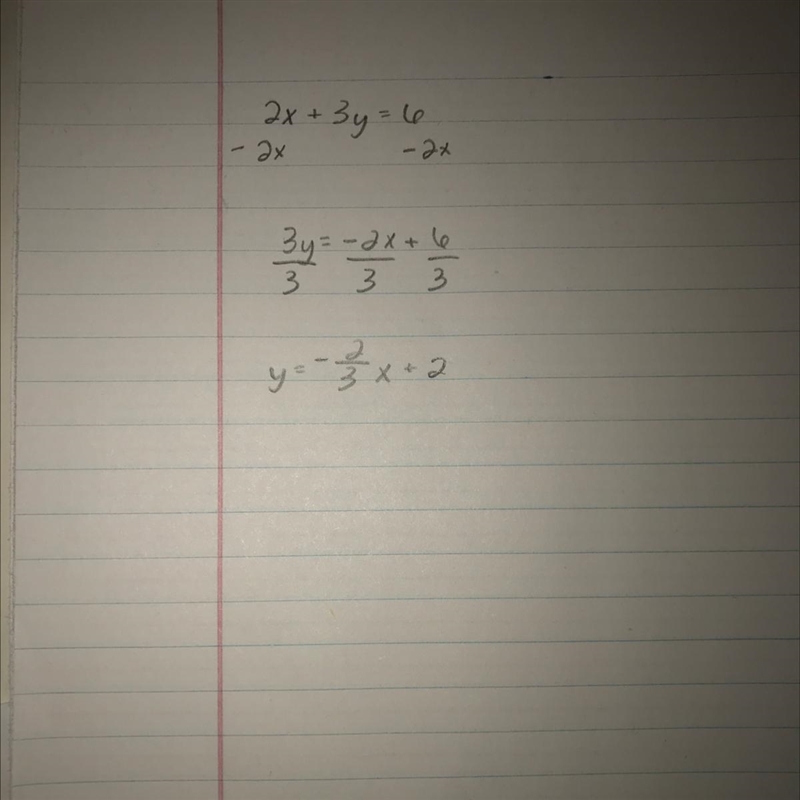 2x + 3y = 6
- 2x - 2x
3y = -2x + 6
3 3 3
y = - 2/3 x + 2